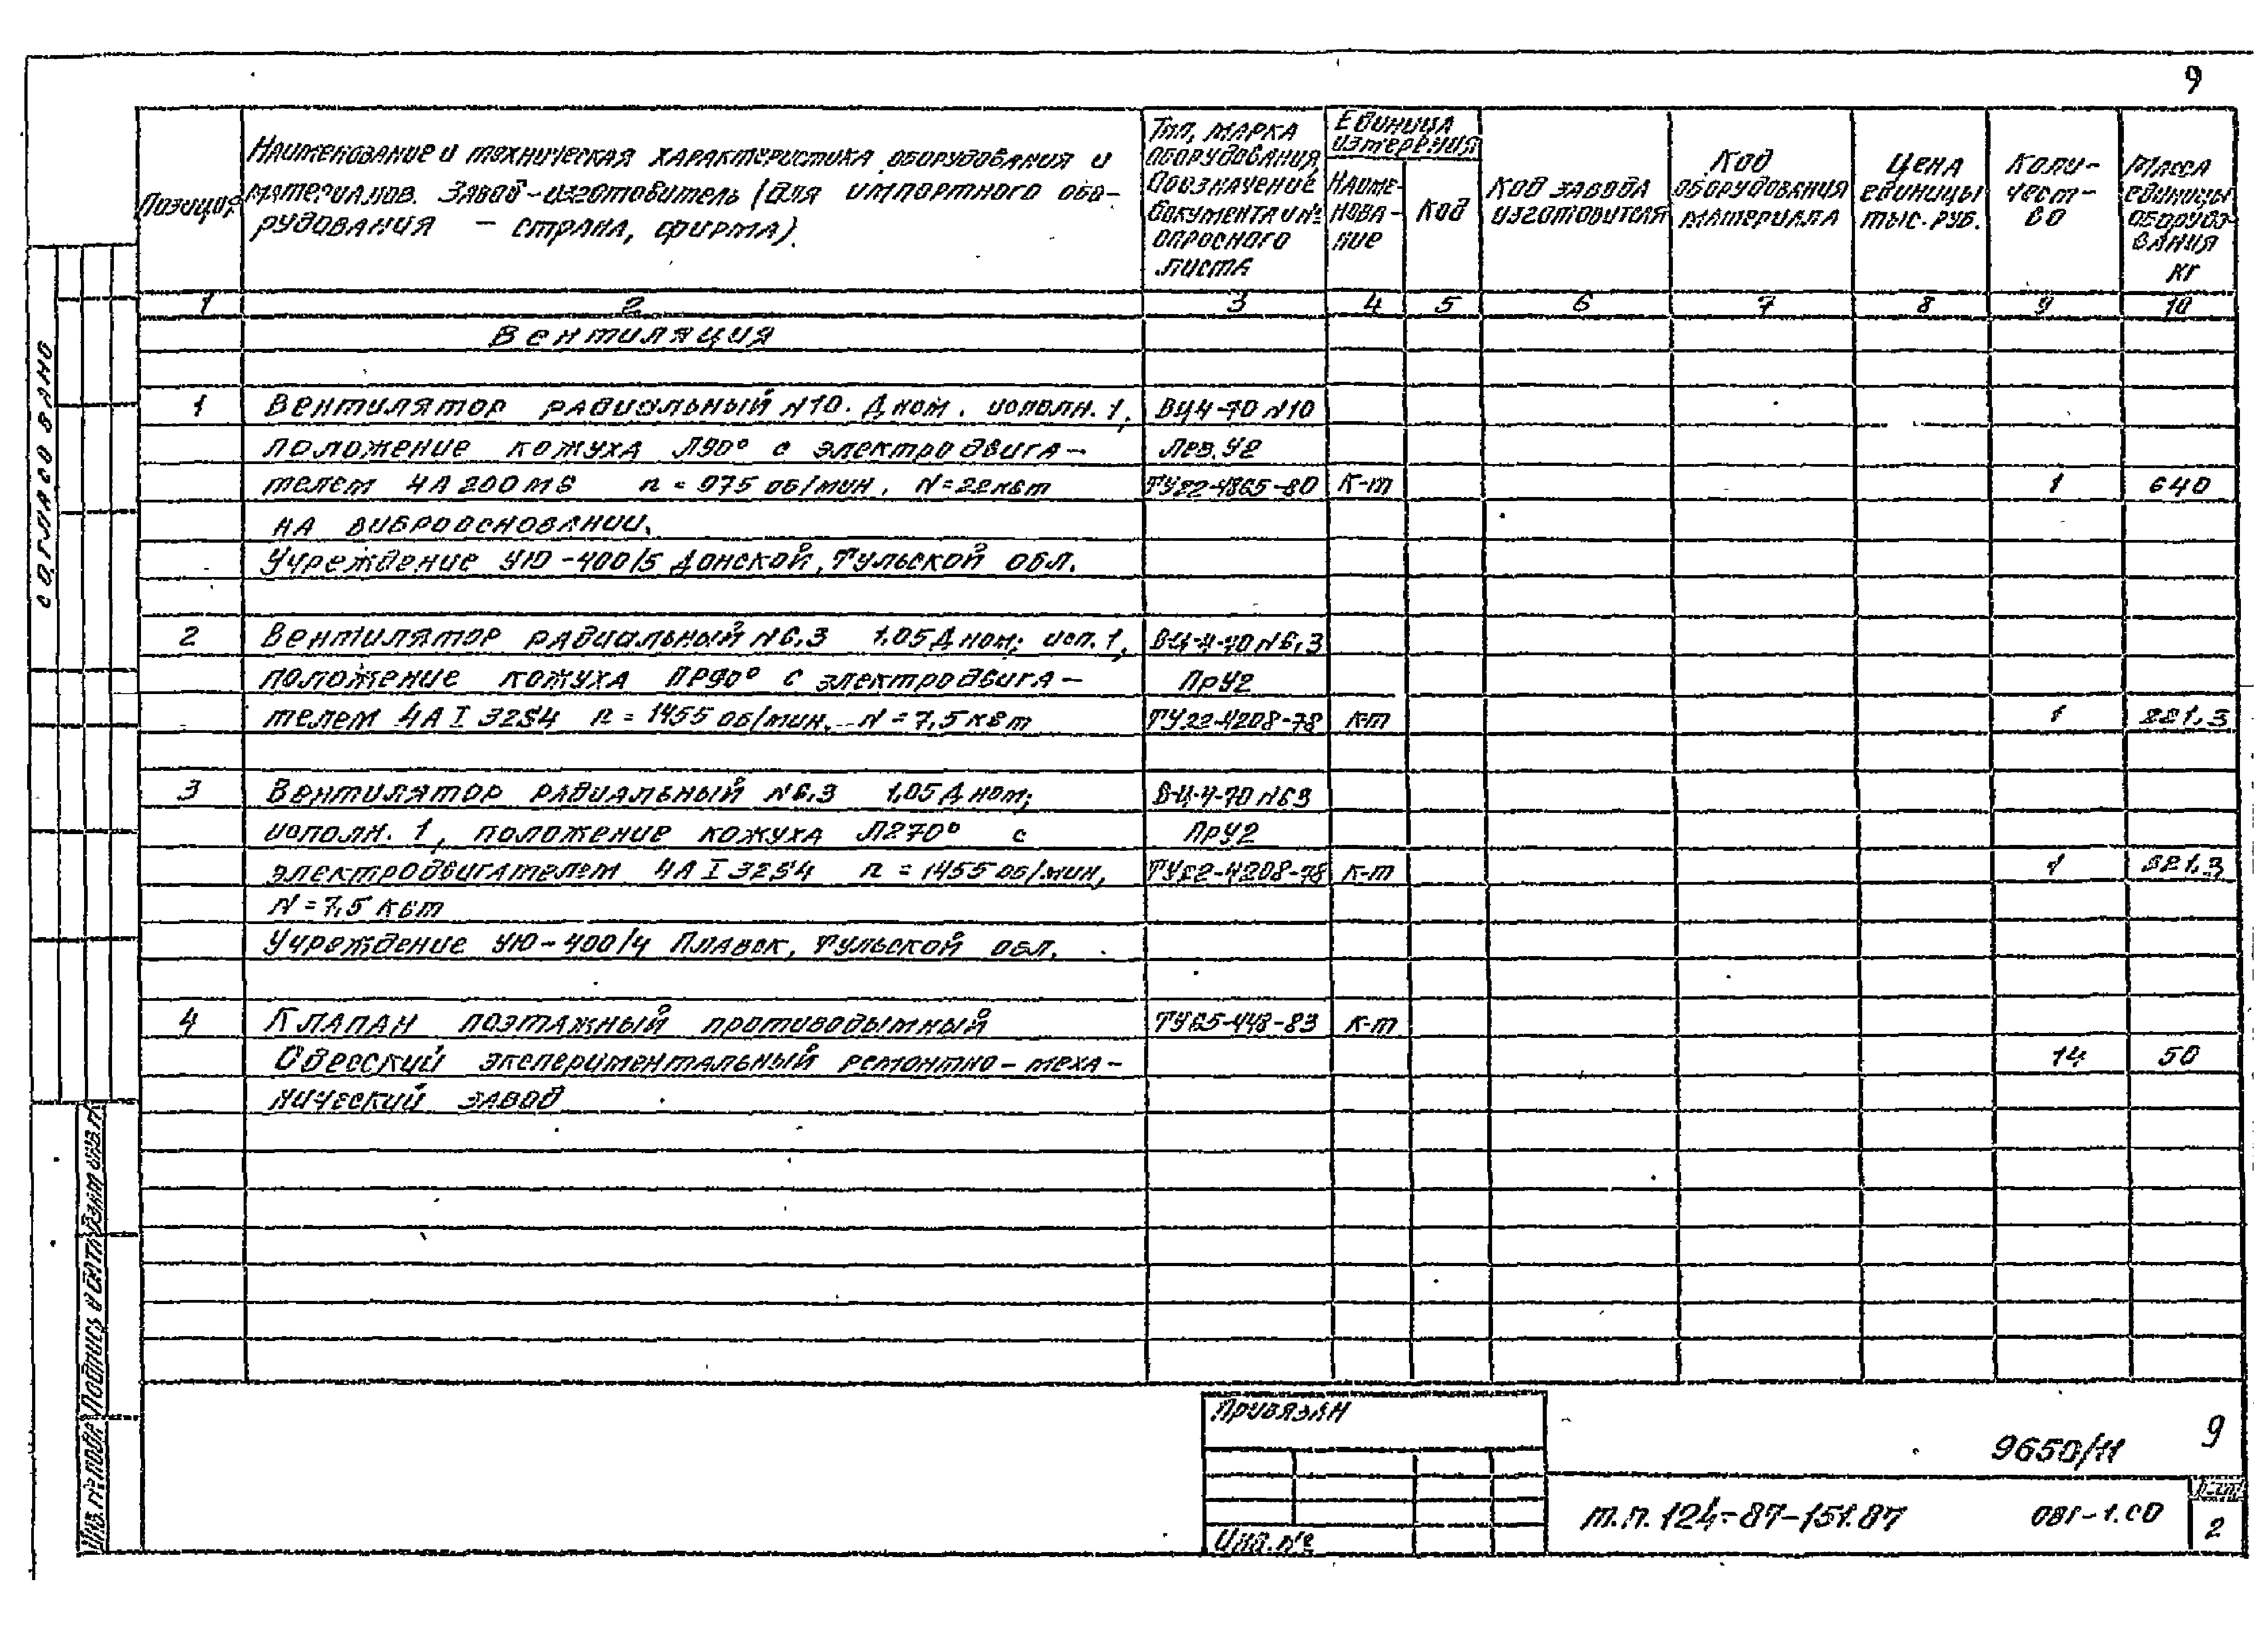 9
Позиция
Наименование и техническая характеристика оборудования и
материалов. Завод-изготовитель (для импортного обо-
рудования – страна, фирма).
Тип, марка
оборудования,
Обозначение
документа и №
опросного
листа
Единица
измерения
Наиме-
нова-
ние
Код
Код завода
изготовителя
Код
оборудования
материала
Цена
единицы
тыс. руб.
Коли-
чест-
во
Масса
единицы
оборудо-
вания
кг
1 2 3 4 5 6 7 8 9 10
Вентиляция
1 Вентилятор радиальный N10. Дном. исполн. 1, ВЦ4-70 N10
положение кожуха Л90° с электродвига- Лев. У2
телем 4А200М6 n = 975 об/мин, N=22квт ТУ22-4865-80 К-т 1 640
на виброосновании.
Учреждение УЮ-400/5 Донской, Тульской обл.
2 Вентилятор радиальный N6,3 1,05Дном; исп. 1, В-Ц-4-70 N6,3
положение кожуха ПР90° с электродвига- ПрУ2
телем 4АI32S4 n = 1455 об/мин. N = 7,5 квт ТУ22-4208-78 к-т 1 221,3
3 Вентилятор радиальный N6,3 1,05Дном; В-Ц-4-70 N63
исполн. 1, положение кожуха Л270° с ПрУ2
электродвигателем 4АI32S4 n = 1455 об/мин, ТУ22-4208-78 к-т 1 221,3
N = 7,5 квт
Учреждение УЮ-400/4 Плавск, Тульской обл.
4 Клапан поэтажный противодымный ТУ65-448-83 к-т
Одесский экспериментальный ремонтно-меха- 14 50
нический завод
Согласовано
Взам инв. №
Подпись и дата
Инв. № подл
Привязан
Инв. №
9650/11 9
т.п. 124-87-151.87 ОВГ-1.СО
Лист
2